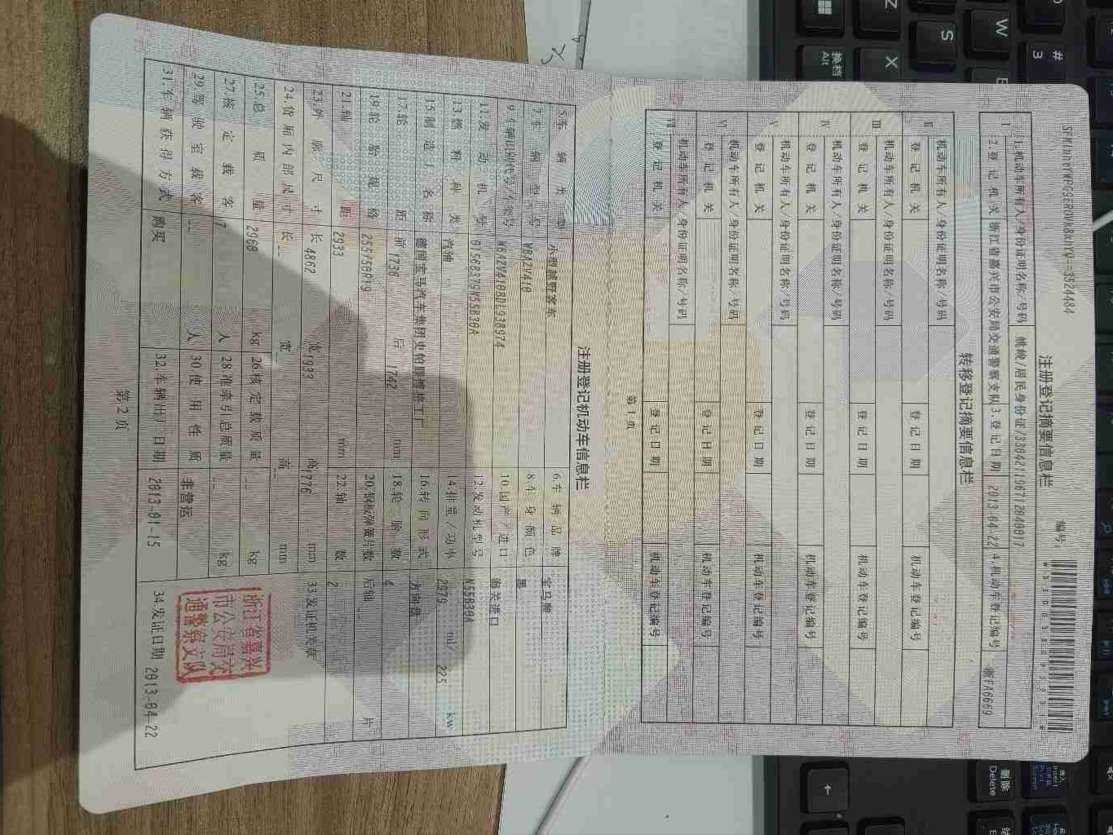 注册登记摘要信息栏
编号:
1.机动车所有人/身份证明名称/号码
2.登记机关 浙江省嘉兴市公安局交通警察支队 3.登记日期 2013-04-22 4.机动车登记编号 浙FA6669
转移登记摘要信息栏
Ⅱ 机动车所有人/身份证明名称/号码
登记机关 登记日期 机动车登记编号
Ⅲ 机动车所有人/身份证明名称/号码
登记机关 登记日期 机动车登记编号
Ⅳ 机动车所有人/身份证明名称/号码
登记机关 登记日期 机动车登记编号
Ⅴ 机动车所有人/身份证明名称/号码
登记机关 登记日期 机动车登记编号
Ⅵ 机动车所有人/身份证明名称/号码
登记机关 登记日期 机动车登记编号
Ⅶ 机动车所有人/身份证明名称/号码
登记机关 登记日期 机动车登记编号
第1页
注册登记机动车信息栏
5.车辆类型 小型越野客车 6.车辆品牌 宝马牌
7.车辆型号 8.车身颜色 黑
9.车辆识别代号/车架号 10.国产/进口 海关进口
11.发动机号 12.发动机型号 N55B30A
13.燃料种类 汽油 14.排量/功率 2979 ml/ 225 kw
15.制造厂名称 16.转向形式 方向盘
17.轮距 前 1738 后 1742 mm 18.轮胎数 4
19.轮胎规格 20.钢板弹簧片数 后轴 片
21.轴距 2933 mm 22.轴数 2
23.外廓尺寸 长 4862 宽 1933 高 1776 mm 33.发证机关章
24.货厢内部尺寸 长 宽 高 mm
25.总质量 kg 26.核定载质量 kg
27.核定载客 人 28.准牵引总质量 kg
29.驾驶室载客 人 30.使用性质 非营运
31.车辆获得方式 购买 32.车辆出厂日期 2013-01-15 34.发证日期 2013-04-22
浙江省嘉兴
市公安局交
通警察支队
第2页